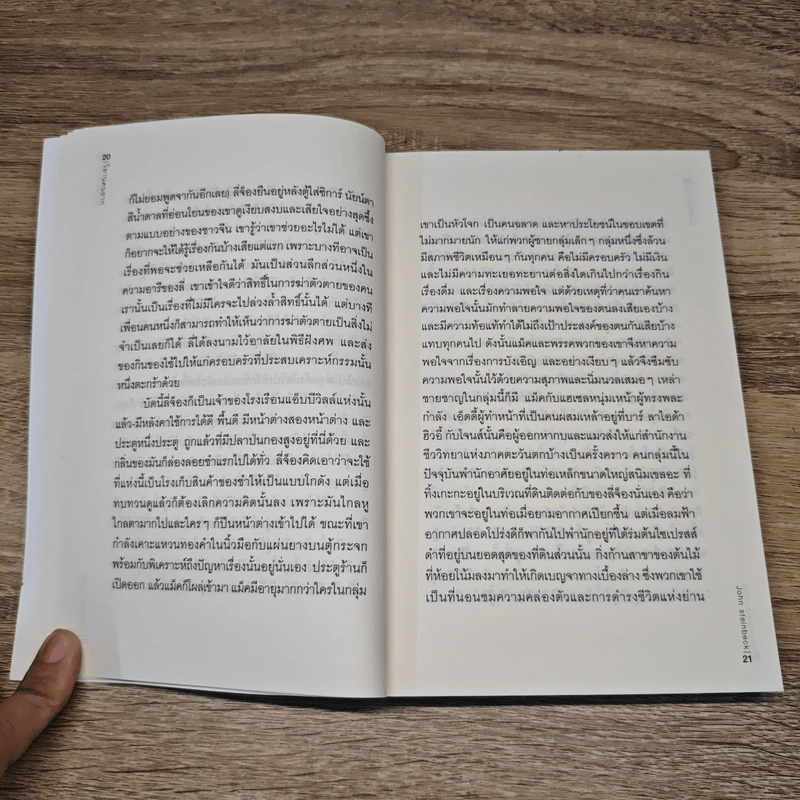 20
ก็ไม่ยอมพูดจากันอีกเลย) ลี่จ็องยืนอยู่หลังตู้ใส่ซิการ์ นัยน์ตา
สีน้ำตาลที่อ่อนโยนของเขาดูเงียบสงบและเสียใจอย่างสุดซึ้ง
ตามแบบอย่างของชาวจีน เขารู้ว่าเขาช่วยอะไรไม่ได้ แต่เขา
ก็อยากจะให้ได้รู้เรื่องกันบ้างเสียแต่แรก เพราะบางทีอาจเป็น
เรื่องที่พอจะช่วยเหลือกันได้ มันเป็นส่วนลึกส่วนหนึ่งใน
ความอารีของลี่ เขาเข้าใจดีว่าสิทธิ์ในการฆ่าตัวตายของคน
เรานั้นเป็นเรื่องที่ไม่มีใครจะไปล่วงล้ำสิทธิ์นั้นได้ แต่บางที
เพื่อนคนหนึ่งก็สามารถทำให้เห็นว่าการฆ่าตัวตายเป็นสิ่งไม่
จำเป็นเลยก็ได้ ลี่ได้ลงนามไว้อาลัยในพิธีฝังศพ และส่ง
ของกินของใช้ไปให้แก่ครอบครัวที่ประสบเคราะห์กรรมนั้น
หนึ่งตะกร้าด้วย
บัดนี้ลี่จ็องก็เป็นเจ้าของโรงเรือนแอ๊บบีวิลล์แห่งนั้น
แล้ว-มีหลังคาใช้การได้ดี พื้นดี มีหน้าต่างสองหน้าต่าง และ
ประตูหนึ่งประตู ถูกแล้วที่มีปลาป่นกองสูงอยู่ที่นี่ด้วย และ
กลิ่นของมันก็ล่องลอยซ่าแรกไปได้ทั่ว ลี่จ็องคิดเอาว่าจะใช้
ที่แห่งนี้เป็นโรงเก็บสินค้าของชำให้เป็นแบบโกดัง แต่เมื่อ
ทบทวนดูแล้วก็ต้องเลิกความคิดนั้นลง เพราะมันไกลหู
ไกลตามากไปและใครๆ ก็ปีนหน้าต่างเข้าไปได้ ขณะที่เขา
กำลังเคาะแหวนทองคำในนิ้วมือกับแผ่นยางบนตู้กระจก
พร้อมกับพิเคราะห์ถึงปัญหาเรื่องนั้นอยู่นั่นเอง ประตูร้านก็
เปิดออก แล้วแม็คก็โผล่เข้ามา แม็คมีอายุมากกว่าใครในกลุ่ม
เขาเป็นหัวโจก เป็นคนฉลาด และหาประโยชน์ในขอบเขตที่
ไม่มากมายนัก ให้แก่พวกผู้ชายกลุ่มเล็กๆ กลุ่มหนึ่งซึ่งล้วน
มีสภาพชีวิตเหมือนๆ กันทุกคน คือไม่มีครอบครัว ไม่มีเงิน
และไม่มีความทะเยอทะยานต่อสิ่งใดเกินไปกว่าเรื่องกิน
เรื่องดื่ม และเรื่องความพอใจ แต่ด้วยเหตุที่ว่าคนเราค้นหา
ความพอใจนั้นมักทำลายความพอใจของตนลงเสียเองบ้าง
และมีความท้อแท้ทำได้ไม่ถึงเป้าประสงค์ของตนกันเสียบ้าง
แทบทุกคนไป ดังนั้นแม็คและพรรคพวกของเขาจึงหาความ
พอใจจากเรื่องการบังเอิญ และอย่างเงียบๆ แล้วจึงซึมซับ
ความพอใจนั้นไว้ด้วยความสุภาพและนิ่มนวลเสมอๆ เหล่า
ชายชาญในกลุ่มนี้ก็มี แม็คกับแฮเซลหนุ่มเจ้าผู้ทรงพละ
กำลัง เอ็ดดี้ผู้ทำหน้าที่เป็นคนผสมเหล้าอยู่ที่บาร์ ลาไอด้า
ฮิวอี้ กับโจนส์นั้นคือผู้ออกหากบและแมวส่งให้แก่สำนักงาน
ชีววิทยาแห่งภาคตะวันตกบ้างเป็นครั้งคราว คนกลุ่มนี้ใน
ปัจจุบันพำนักอาศัยอยู่ในท่อเหล็กขนาดใหญ่สนิมเขลอะ ที่
ทิ้งเกะกะอยู่ในบริเวณที่ดินติดต่อกับของลี่จ็องนั่นเอง คือว่า
พวกเขาจะอยู่ในท่อเมื่อยามอากาศเปียกชื้น แต่เมื่อลมฟ้า
อากาศปลอดโปร่งดีก็พากันไปพำนักอยู่ที่ใต้ร่มต้นไซเปรสส์
ดำที่อยู่บนยอดสุดของที่ดินส่วนนั้น กิ่งก้านสาขาของต้นไม้
ที่ห้อยโน้มลงมาทำให้เกิดเบญจาทางเบื้องล่าง ซึ่งพวกเขาใช้
เป็นที่นอนชมความคล่องตัวและการดำรงชีวิตแห่งย่าน
john steinbeck
21